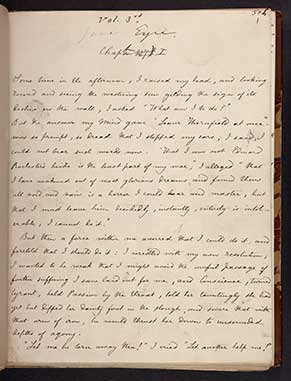 Vol. 3rd
Jane Eyre
Chapter I
Some time in the afternoon, I raised my head, and looking
round and seeing the westering sun gilding the sign of its
decline on the wall, I asked "What am I to do?"
But the answer my mind gave "Leave Thornfield at once"
was so prompt, so dread, that I stopped my ears; I said, I
could not bear such words now. "That I am not Edward
Rochester's bride is the least part of my woe," I alleged "that
I have wakened out of most glorious dreams and found them
all void and vain is a horror I could bear and master; but
that I must leave him decidedly, instantly, entirely is intol-
erable, I cannot do it."
But then a force within me averred that I could do it, and
foretold that I should do it: I wrestled with my own resolution;
I wanted to be weak that I might avoid the awful passage of
further suffering I saw laid out for me, and Conscience, turned
tyrant, held Passion by the throat, told her tauntingly she had
yet but dipped her dainty foot in the slough, and swore that with
that arm of iron, he would thrust her down to unsounded
depths of agony.
"Let me be torn away then!" I cried "Let another help me!"